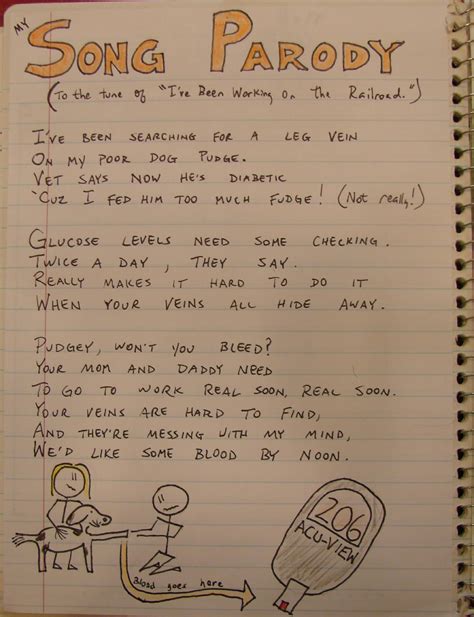 MY
SONG PARODY
(TO THE TUNE OF "I'VE BEEN WORKING ON THE RAILROAD.")
I'VE BEEN SEARCHING FOR A LEG VEIN
ON MY POOR DOG PUDGE.
VET SAYS NOW HE'S DIABETIC
'CUZ I FED HIM TOO MUCH FUDGE! (NOT REALLY!)
GLUCOSE LEVELS NEED SOME CHECKING.
TWICE A DAY, THEY SAY.
REALLY MAKES IT HARD TO DO IT
WHEN YOUR VEINS ALL HIDE AWAY.
PUDGEY, WON'T YOU BLEED?
YOUR MOM AND DADDY NEED
TO GO TO WORK REAL SOON, REAL SOON.
YOUR VEINS ARE HARD TO FIND,
AND THEY'RE MESSING WITH MY MIND,
WE'D LIKE SOME BLOOD BY NOON.
206
ACU-VIEW
Blood goes here